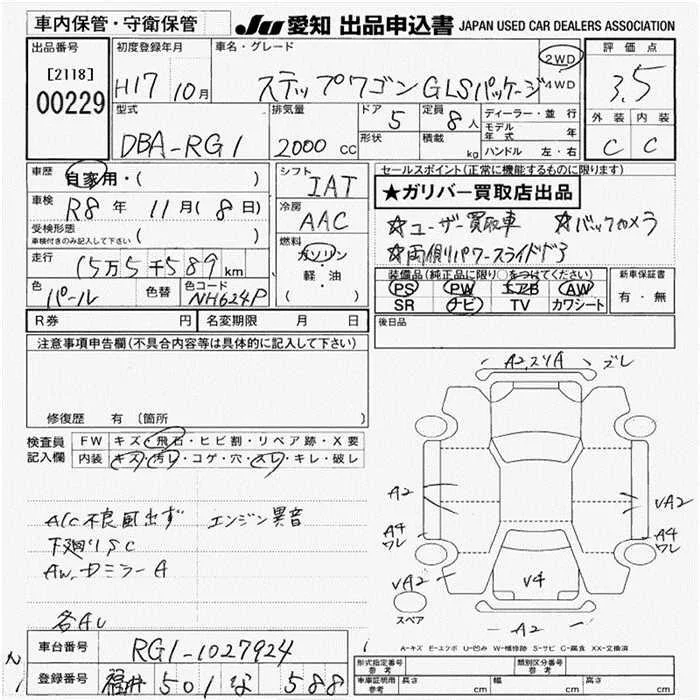 車内保管・守衛保管
JU 愛知 出品申込書 JAPAN USED CAR DEALERS ASSOCIATION
出品番号
[2118]
00229
初度登録年月
H17 10月
車名・グレード
ステップワゴン GLSパッケージ
2WD
4WD
評価点
3.5
外装 内装
C C
型式
DBA-RG1
排気量
2000 cc
ドア 5
形状
定員 8人
積載 kg
ディーラー・並行
モデル年式 年
ハンドル 左・右
車歴 自家用・( )
車検 R8年 11月(8日)
受検形態
車検付きのみ記入して下さい ( )
走行 15万5千589km
色 パール 色替 色コード NH624P
シフト IAT
冷房 AAC
燃料
ガソリン
軽・油
( )
セールスポイント(正常に機能するものに限ります)
★ガリバー買取店出品
☆ユーザー買取車 ☆バックカメラ
☆両側パワースライドドア
装備品(純正品に限り○をつけてください)
PS PW エアB AW
SR ナビ TV カワシート
新車保証書
有・無
R券 円 名変期限 月 日
後日品
注意事項申告欄(不具合内容等は具体的に記入して下さい)
修復歴 有(箇所 )
検査員記入欄
FW キズ・飛石・ヒビ割・リペア跡・X要
内装 キズ・汚レ・コゲ・穴・スレ・キレ・破レ
A/C不良風出ず エンジン異音
下廻りSC
AW.ドミラーA
各AU
A2,スリA ズレ
A2
VA2
A4
ワレ
A4
ワレ
VA2
V4
VA2
スペア
A2
A-キズ E-エクボ U-凹み W-補修跡 S-サビ C-腐食 XX-交換済
車台番号 RG1-1027924
登録番号 福井 501 な 588
形式指定番号
参考
類別区分番号
参考
車庫証明用
参考
長さ cm 幅 cm 高さ cm